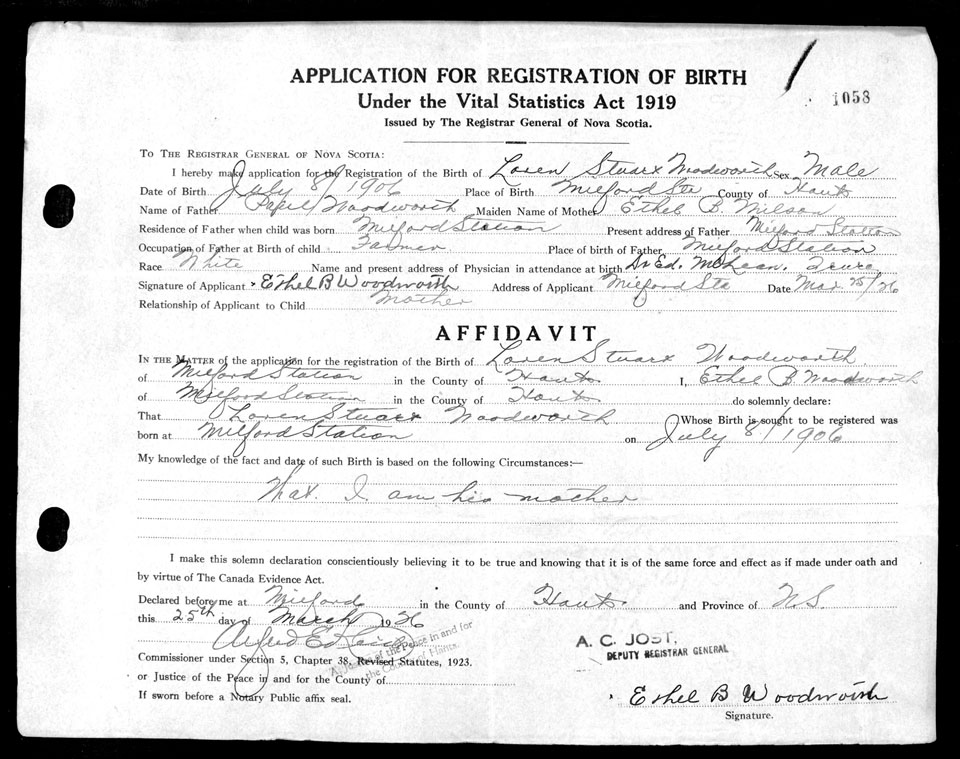 1058
APPLICATION FOR REGISTRATION OF BIRTH
Under the Vital Statistics Act 1919
Issued by The Registrar General of Nova Scotia.
TO THE REGISTRAR GENERAL OF NOVA SCOTIA:
I hereby make application for the Registration of the Birth of Loren Stuart Woodworth Sex Male
Date of Birth July 8/1906 Place of Birth Milford Sta County of Hants
Name of Father Woodworth Maiden Name of Mother Ethel B. Wilson
Residence of Father when child was born Milford Station Present address of Father Milford Station
Occupation of Father at Birth of child Farmer Place of birth of Father Milford Station
Race White Name and present address of Physician in attendance at birth Dr Ed. McLean. Truro
Signature of Applicant Ethel B Woodworth Address of Applicant Milford Sta Date Mar 25/26
Relationship of Applicant to Child Mother
AFFIDAVIT
IN THE MATTER of the application for the registration of the Birth of Loren Stuart Woodworth
of Milford Station in the County of Hants I, Ethel B Woodworth
of Milford Station in the County of Hants do solemnly declare:
That Loren Stuart Woodworth Whose Birth is sought to be registered was
born at Milford Station on July 8/1906
My knowledge of the fact and date of such Birth is based on the following Circumstances:—
That I am his mother
I make this solemn declaration conscientiously believing it to be true and knowing that it is of the same force and effect as if made under oath and
by virtue of The Canada Evidence Act.
Declared before me at Milford in the County of Hants and Province of N.S
this 25th day of March 1926
Alfred Ed
A Justice of the Peace in and for
the County of Hants.
A. C. JOST,
DEPUTY REGISTRAR GENERAL
Commissioner under Section 5, Chapter 38, Revised Statutes, 1923.
or Justice of the Peace in and for the County of
If sworn before a Notary Public affix seal.
Ethel B Woodworth
Signature.